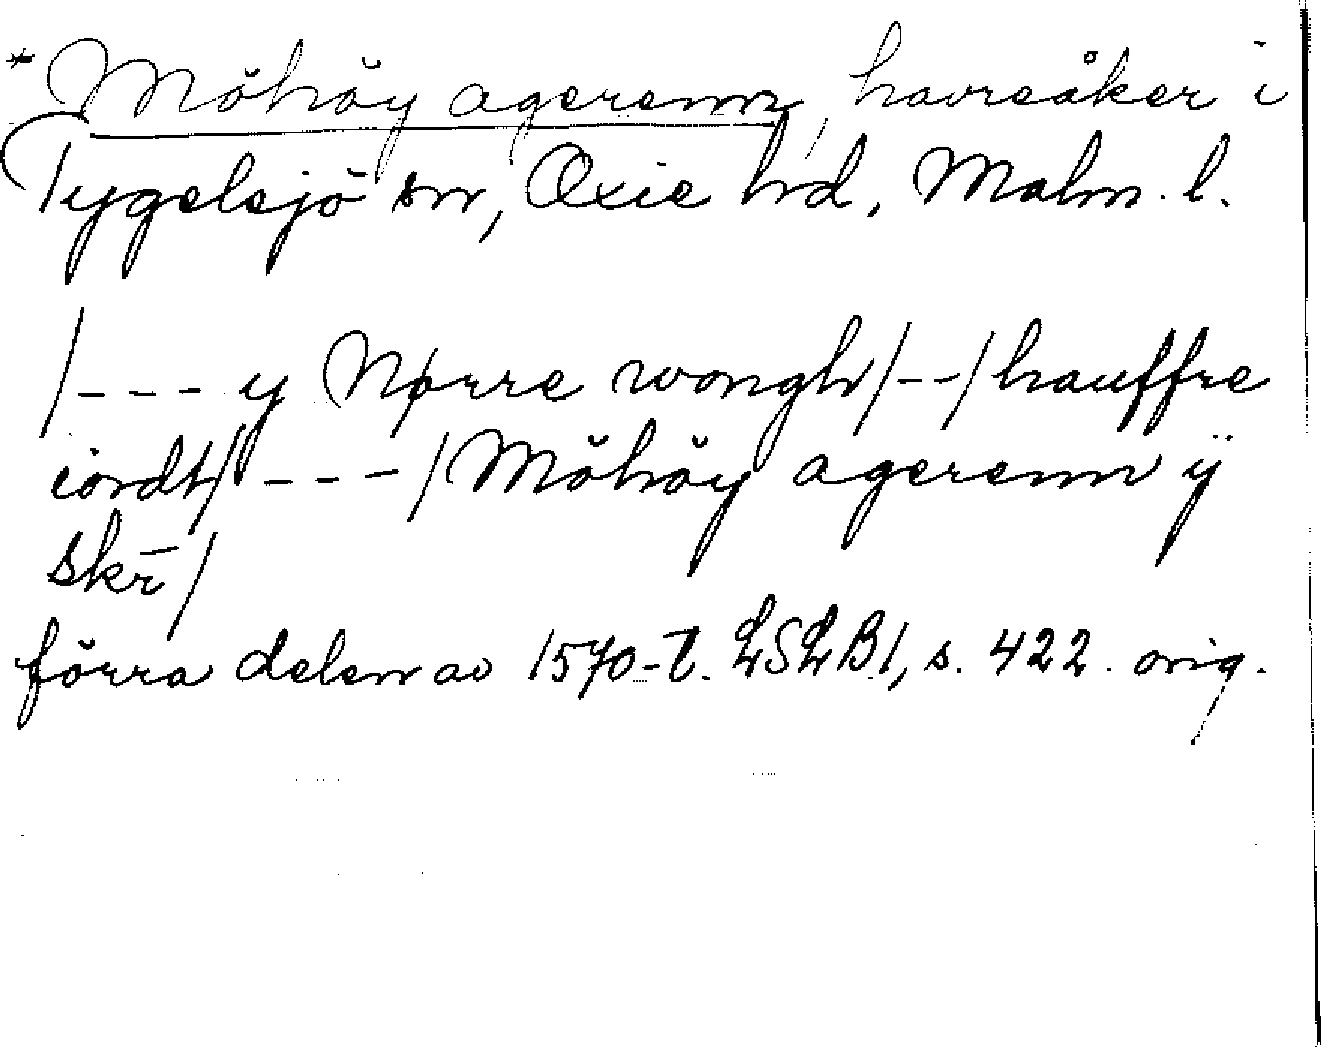 *Möhöy agerenn, havreåker i
Tygelsjö sn, Oxie hd, Malm. l.
/--- y Nørre wongh/--/hauffre
iordt/---/Möhöy agerenn ÿ
skr̄/
förra delen av 1570-t. LSLB1, s. 422. orig.